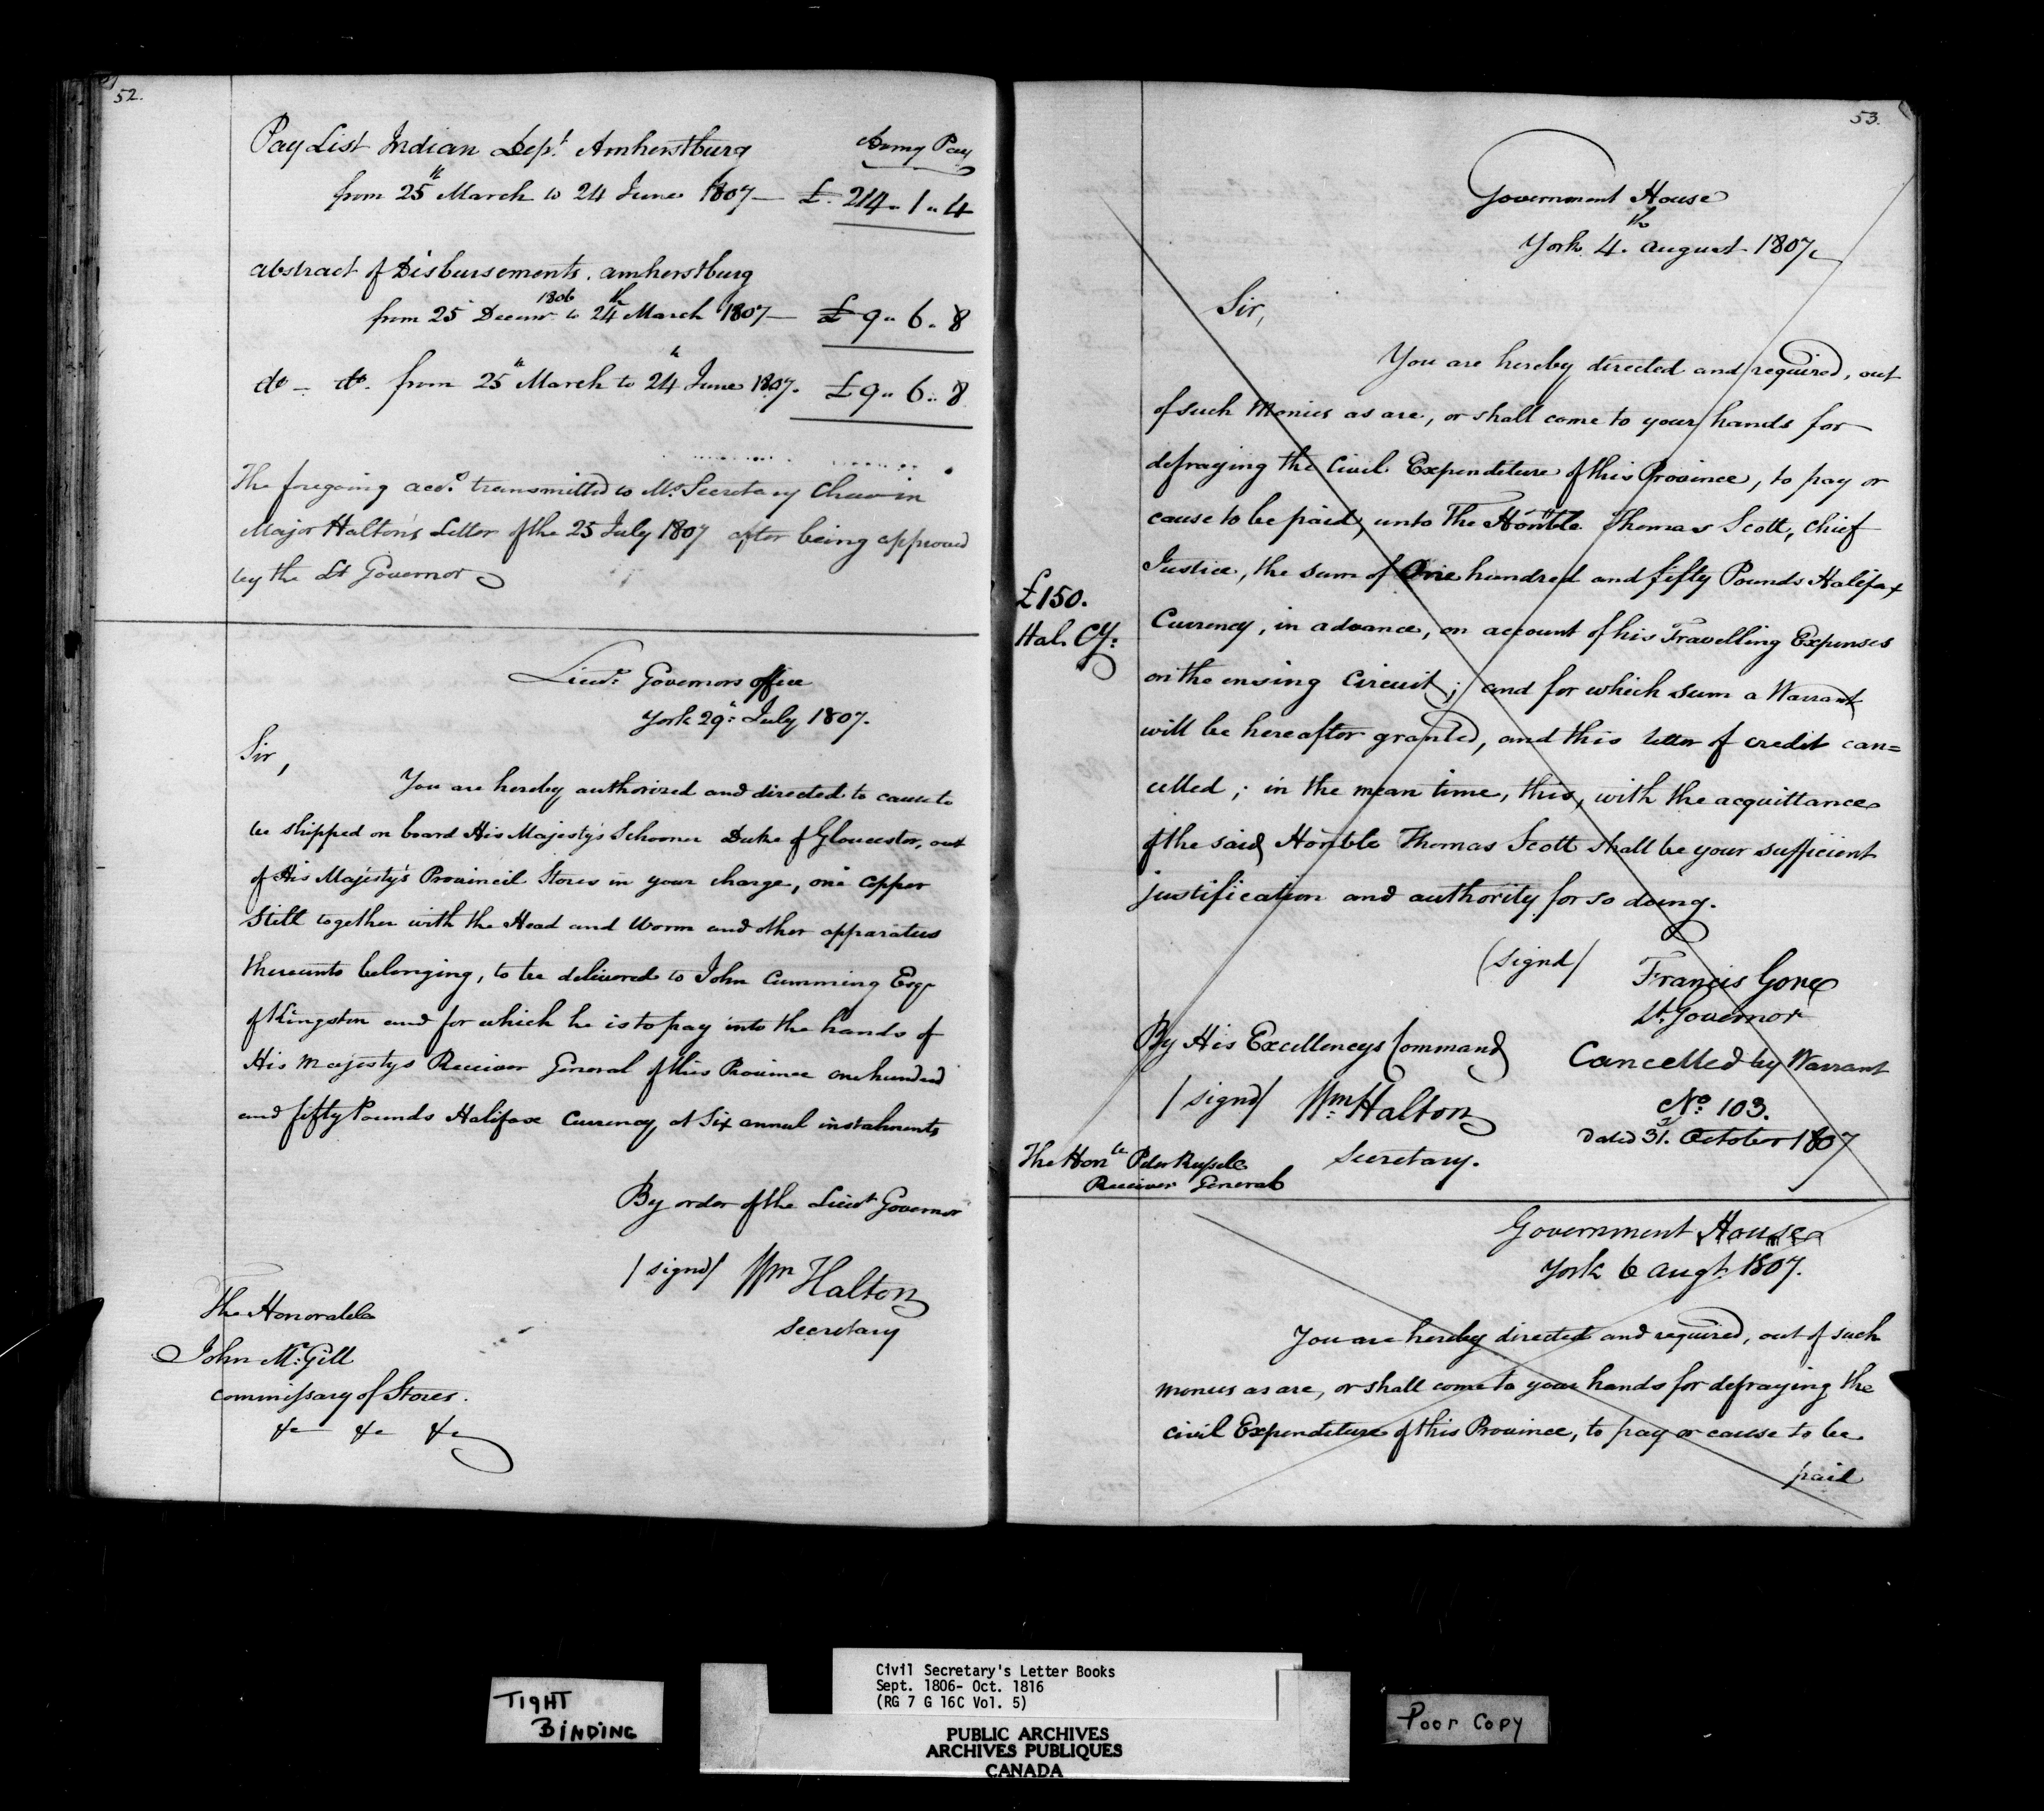 52.
Pay List Indian Dept. Amherstburg Army Pay
from 25th March to 24 June 1807 — £. 214 „ 1 „ 4
abstract of Disbursements. amherstburg
from 25 Decemr. 1806 to 24th March 1807 — £ 9 „ 6 „ 8
do — do. from 25th March to 24th June 1807. £ 9 „ 6 „ 8
The foregoing accts. transmitted to Mr. Secretary Chew in
Major Halton's Letter of the 25 July 1807 after being approved
by the Lt Governor
Lieut. Governors office
York 29th July 1807.
Sir,
You are hereby authorized and directed to cause to
be shipped on board His Majesty's Schooner Duke of Gloucester, out
of His Majesty's Provincil Stores in your charge, one copper
Still together with the Head and Worm and other apparatus
thereunto belonging, to be delivered to John Cumming Esqr
of Kingston and for which he is to pay into the hands of
His Majestys Receiver General of this Province one hundred
and fifty Pounds Halifax Currency, at Six annul instalments
By order of the Lieut Governor
/ signd / Wm Halton
Secretary
The Honorable
John Mc.Gill
Commissary of Stores.
&c &c &c
53.
Government House
York 4th. August 1807
Sir,
You are hereby directed and required, out
of such Monies as are, or shall come to your hands for
defraying the Civil Expenditure of this Province, to pay or
cause to be paid, unto The Honble. Thomas Scott, Chief
Justice, the sum of One hundred and fifty Pounds Halifax
£150.
Hal. Cy:
Currency, in advance, on account of his Travelling Expenses
on the ensing Circuit; and for which sum a Warrant
will be hereafter granted, and this letter of credit can=
celled; in the mean time, this, with the acquittance
of the said Honble Thomas Scott shall be your sufficient
justification and authority for so doing.
(signd/ Francis Gore
Lt. Governor
By His Excellencys Command
/ signd/ Wm. Halton
Secretary.
Cancelled by Warrant
No. 103.
Dated 31. October 1807
The Honble Peter Russell
Receiver General
Government House
York 6 Augt. 1807.
You are hereby directed and required, out of such
monies as are, or shall come to your hands for defraying the
civil Expenditure of this Province, to pay or cause to be
paid
TIGHT
BINDING
Civil Secretary's Letter Books
Sept. 1806- Oct. 1816
(RG 7 G 16C Vol. 5)
PUBLIC ARCHIVES
ARCHIVES PUBLIQUES
CANADA
Poor Copy